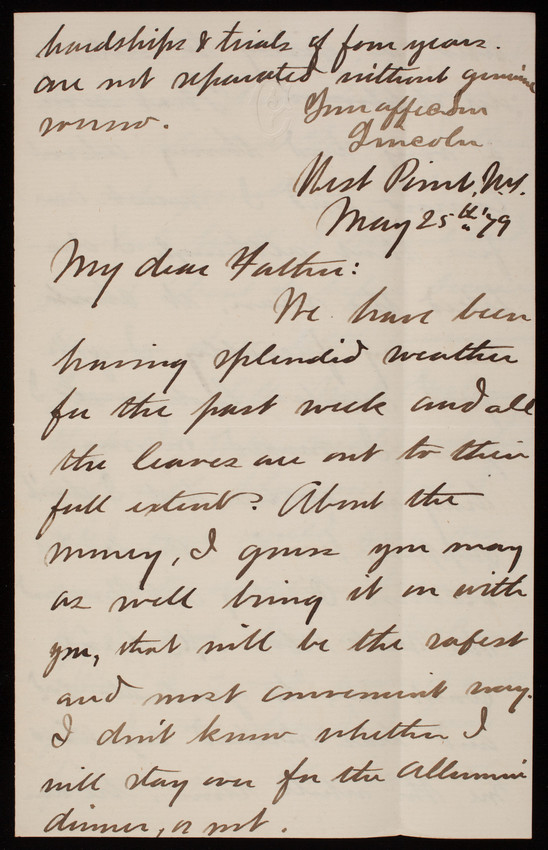 hardships & trials of four years.
are not separated without genuine
sorrow.
Your aff. son
Lincoln.
West Point, N.Y.
May 25th '79
My dear Father:
We have been
having splendid weather
for the past week and all
the leaves are out to their
full extent. About the
money, I guess you may
as well bring it on with
you, that will be the safest
and most convenient way.
I don't know whether I
will stay over for the Allumni
dinner, or not.